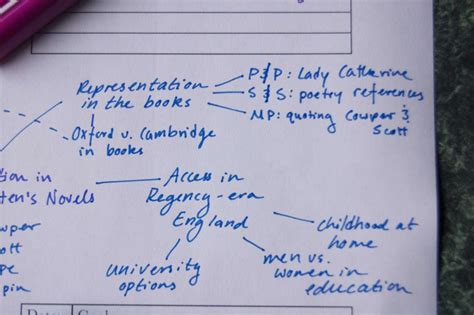 Representation
in the books
P&P: Lady Catherine
S&S: poetry references
MP: quoting Cowper &
Scott
Oxford v. Cambridge
in books
tion in
ten's Novels
wper
ott
pe
pin
Access in
Regency-era
England
childhood at
home
men vs.
women in
education
university
options